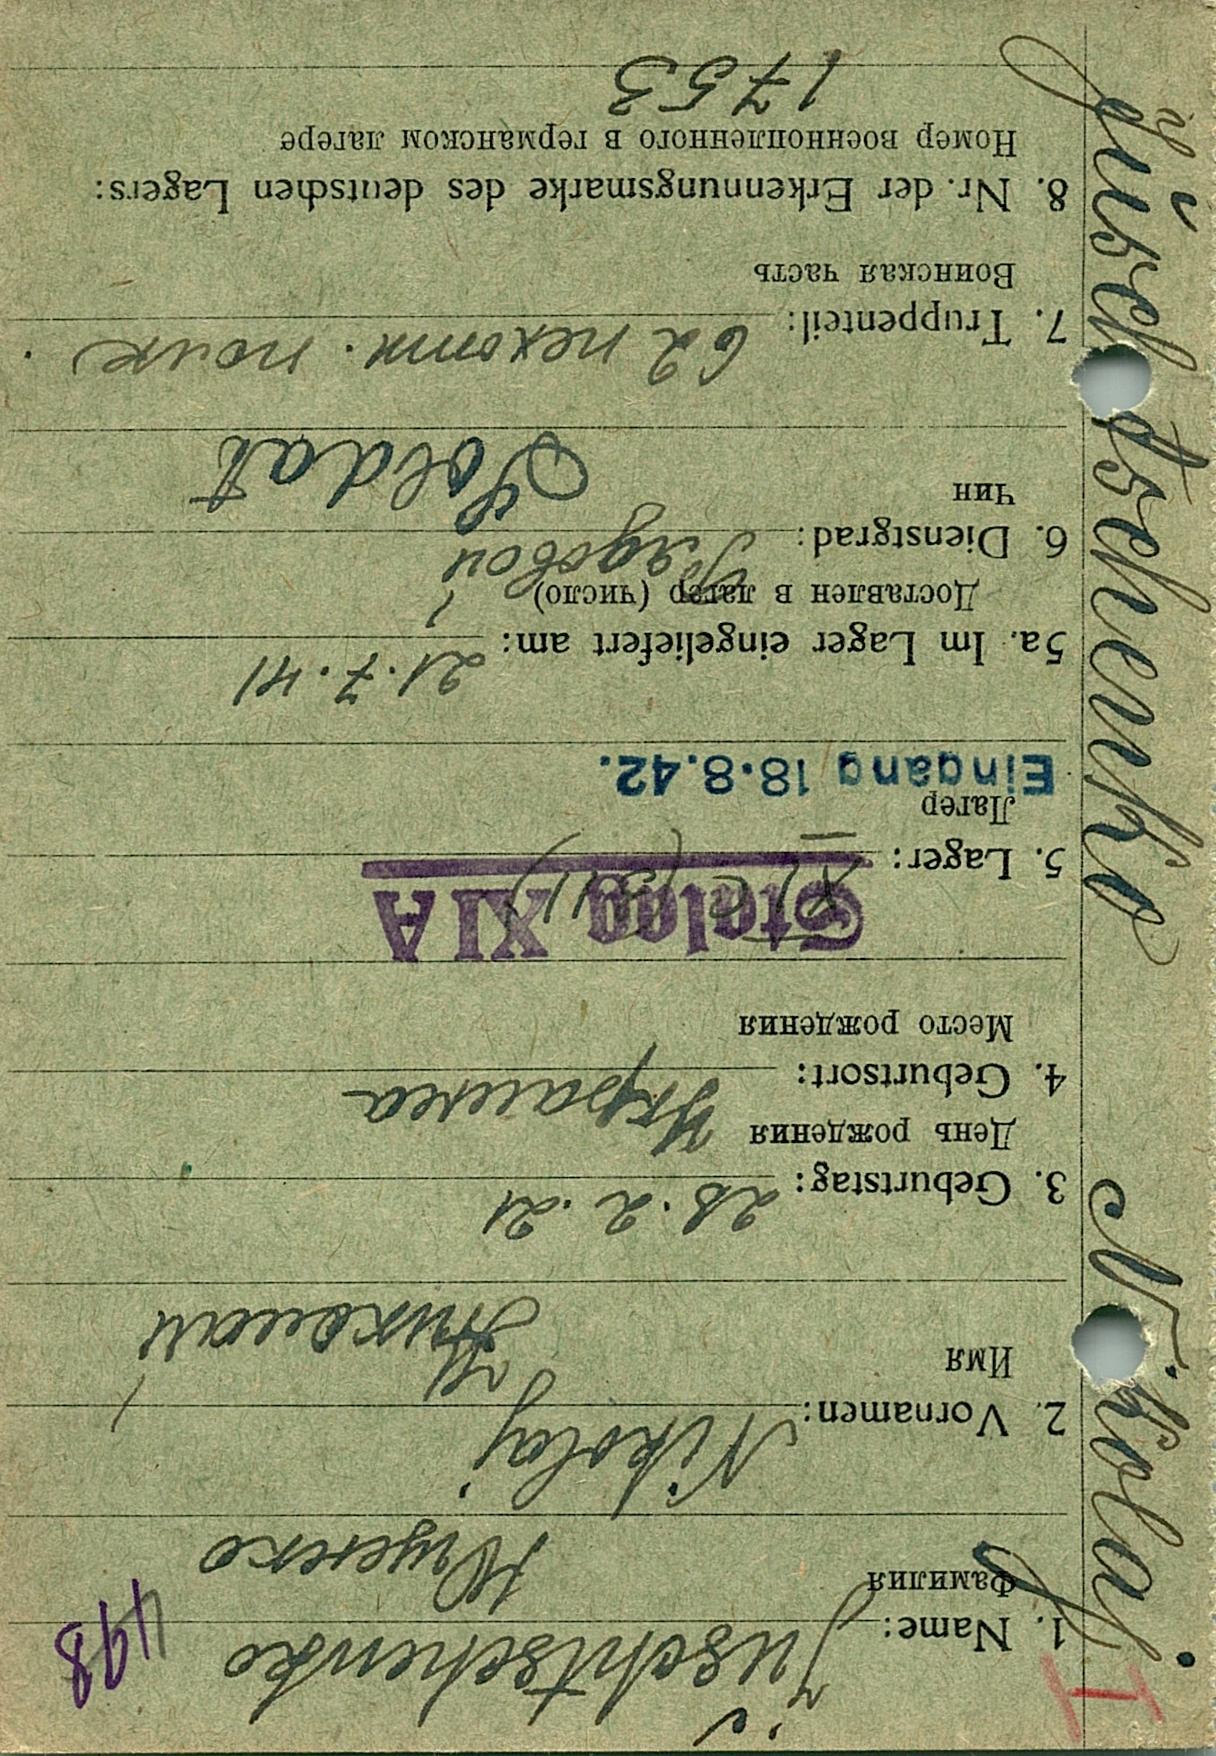 I
Juschtschenko Nikolaj
498
1. Name: Juschtschenko
Фамилия Ющенко
2. Vornamen: Nikolaj
Имя Николай
3. Geburtstag: 28.2.21
День рождения
4. Geburtsort: Украина
Место рождения
5. Lager: XI C (311)
Stalag XIA
Лагер
Eingang 18.8.42.
5a. Im Lager eingeliefert am: 21.7.41
Доставлен в лагер (число)
6. Dienstgrad: Рядовой
Чин Soldat
7. Truppenteil: 62 пехот. полк.
Воинская часть
8. Nr. der Erkennungsmarke des deutschen Lagers:
Номер военнопленного в германском лагере
1753